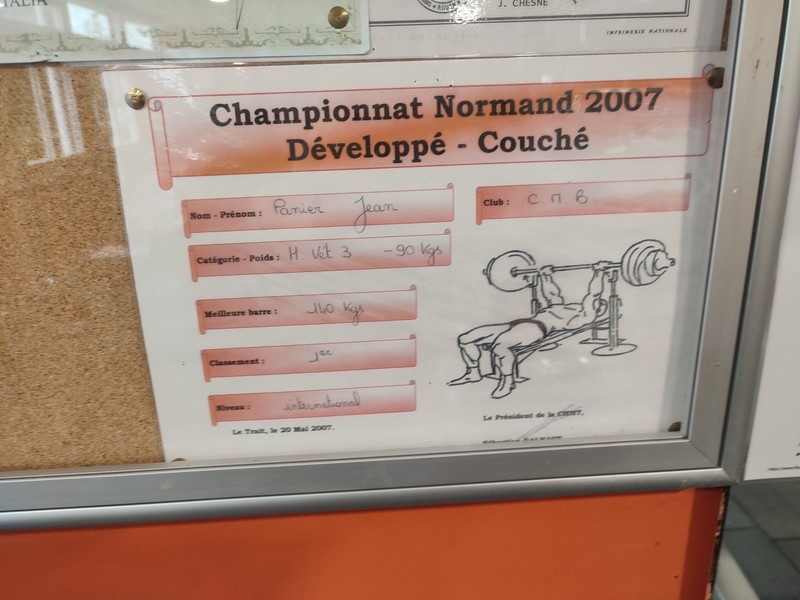 TALIA
J. CHESNE
IMPRIMERIE NATIONALE
Championnat Normand 2007
Développé - Couché
Nom - Prénom : Panier Jean
Club : C M B
Catégorie - Poids : H. Vét 3 -90 Kgs
Meilleure barre : 140 Kgs
Classement : 1er
Niveau : international
Le Trait, le 20 Mai 2007.
Le Président de la